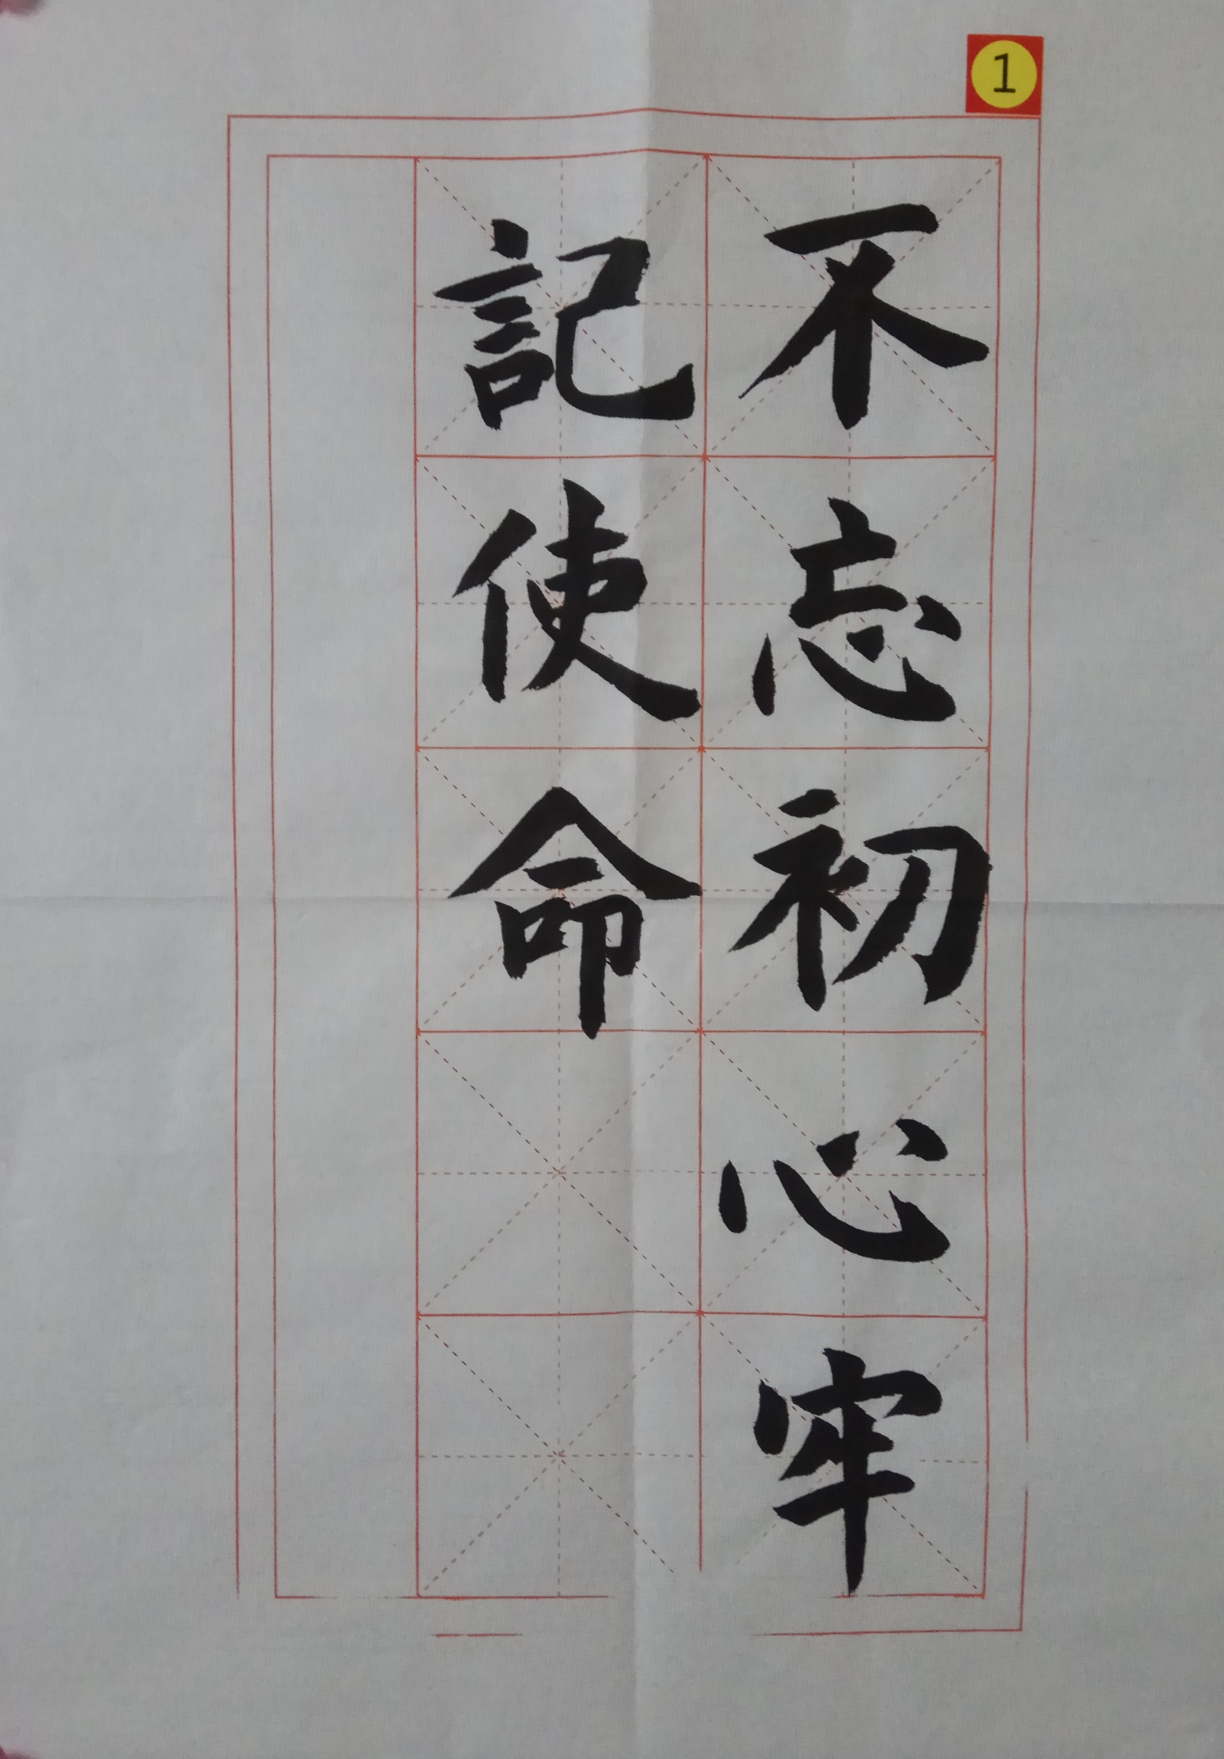 1
不忘初心牢
記使命